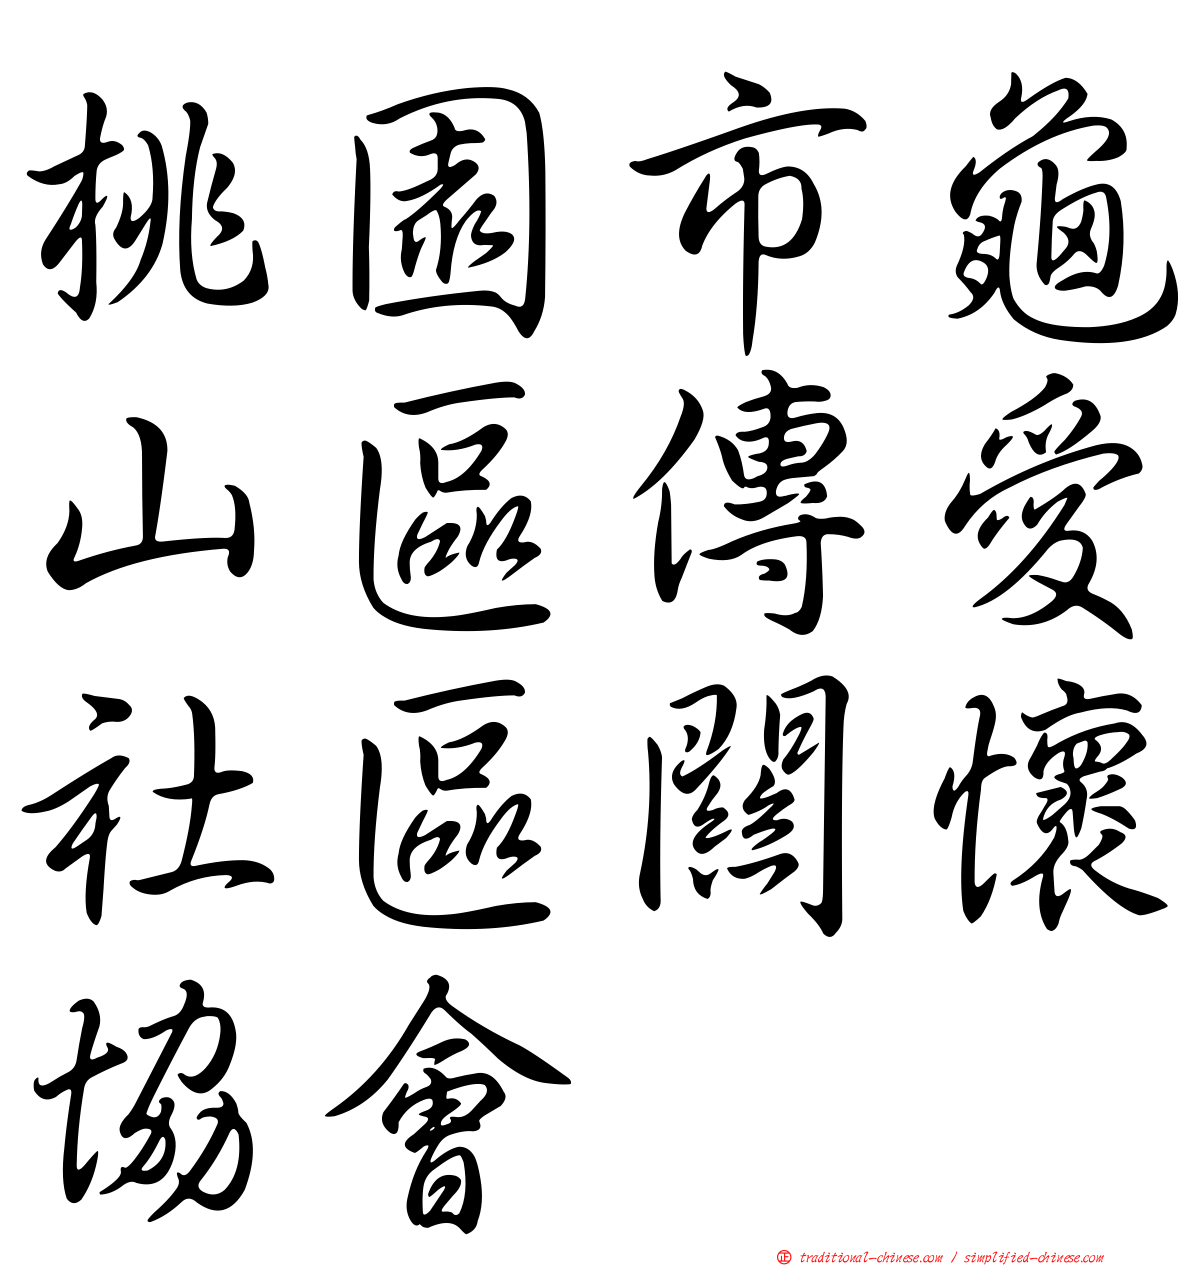 桃園市龜
山區傳愛
社區關懷
協會
正 traditional-chinese.com / simplified-chinese.com